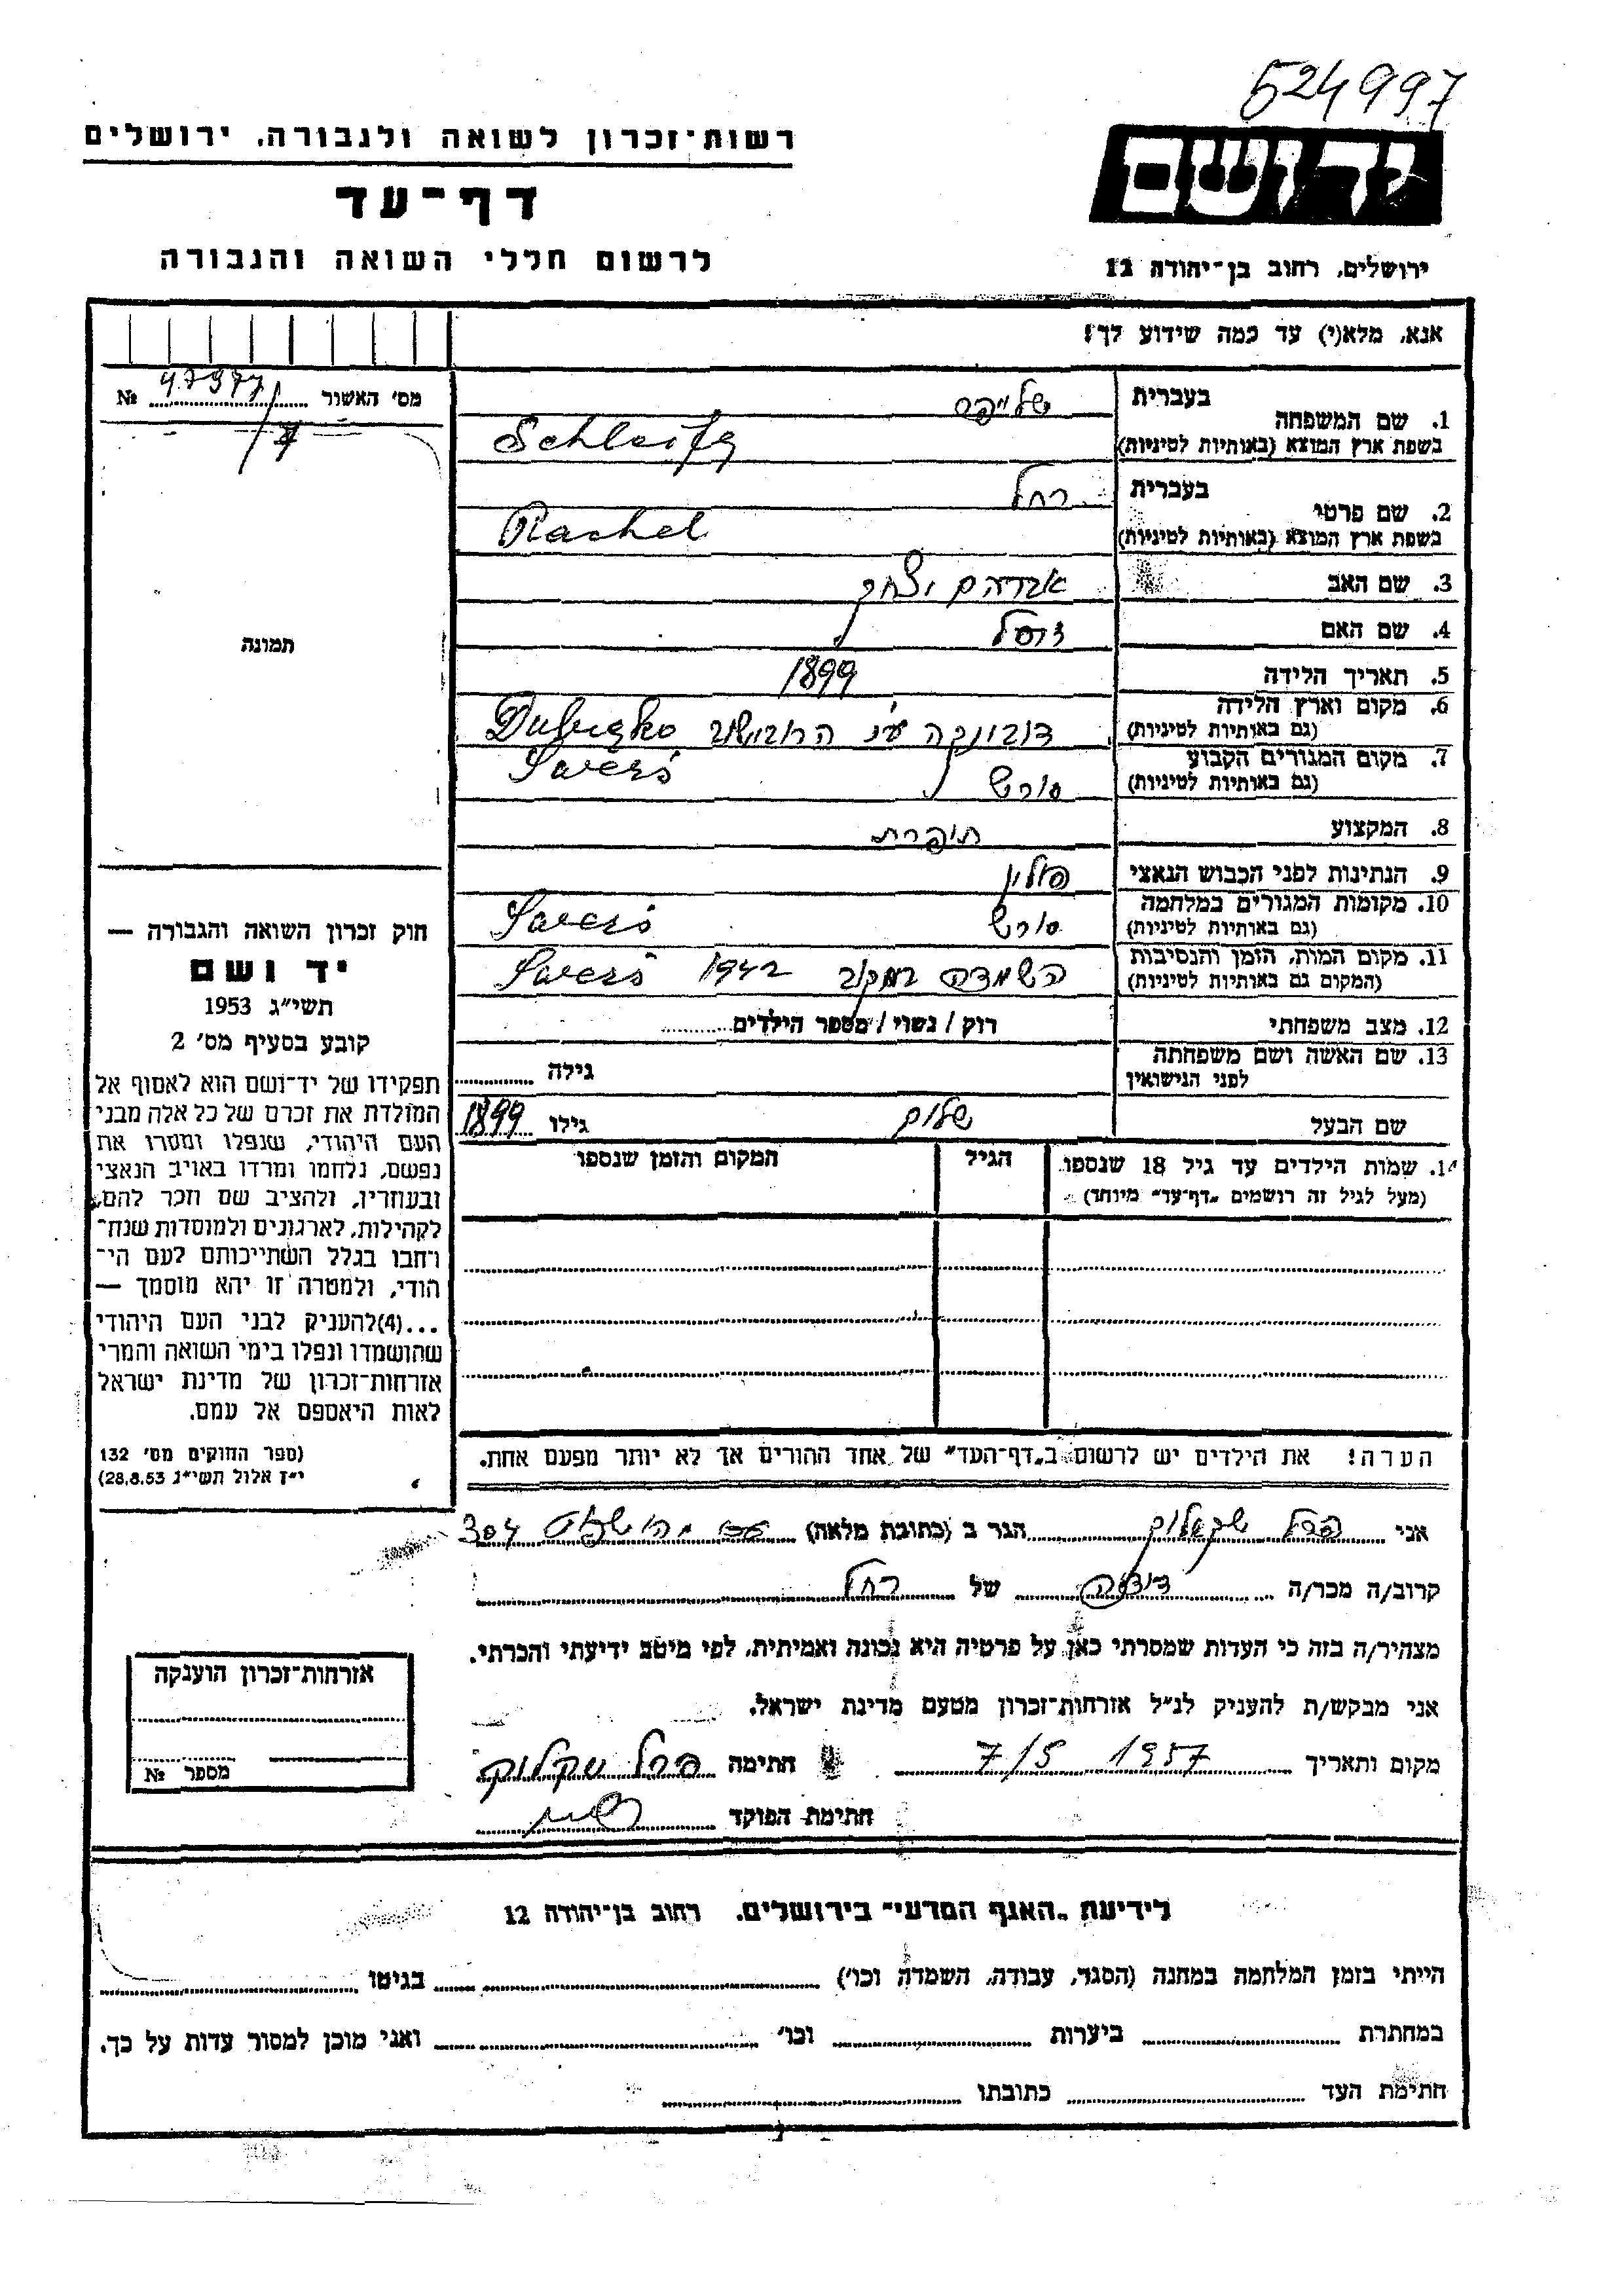 524997
רשות־זכרון לשואה ולגבורה, ירושלים
יד ושם
דף־עד
לרשום חללי השואה והגבורה
ירושלים, רחוב בן־יהודה 12
אנא, מלא(י) עד כמה שידוע לך!
מס׳ האשור 47977 №
1. שם המשפחה
בעברית שלייפר
בשפת ארץ המוצא (באותיות לטיניות) Schleifer
2. שם פרטי
בעברית רחל
בשפת ארץ המוצא (באותיות לטיניות) Rachel
3. שם האב אברהם יצחק
4. שם האם
5. תאריך הלידה 1899
6. מקום וארץ הלידה
(גם באותיות לטיניות) דובונקה ע״י הרובישוב
7. מקום המגורים הקבוע
(גם באותיות לטיניות)
8. המקצוע תופרת
9. הנתינות לפני הכבוש הנאצי פולין
10. מקומות המגורים במלחמה
(גם באותיות לטיניות)
11. מקום המות, הזמן והנסיבות
(המקום גם באותיות לטיניות) השמדה במקום 1942
12. מצב משפחתי רוק / נשוי / מספר הילדים
13. שם האשה ושם משפחתה
לפני הנישואין גילה
שם הבעל שלום גילו 1899
14. שמות הילדים עד גיל 18 שנספו הגיל המקום והזמן שנספו
(מעל לגיל זה רושמים „דף־עד״ מיוחד)
הערה! את הילדים יש לרשום ב„דף־העד״ של אחד ההורים אך לא יותר מפעם אחת.
תמונה
חוק זכרון השואה והגבורה —
יד ושם
תשי״ג 1953
קובע בסעיף מס׳ 2
תפקידו של יד־ושם הוא לאסוף אל
המולדת את זכרם של כל אלה מבני
העם היהודי, שנפלו ומסרו את
נפשם, נלחמו ומרדו באויב הנאצי
ובעוזריו, ולהציב שם וזכר להם,
לקהילות, לארגונים ולמוסדות שנח־
רחבו בגלל השתייכותם לעם הי־
הודי, ולמטרה זו יהא מוסמך —
...(4)להעניק לבני העם היהודי
שהושמדו ונפלו בימי השואה והמרי
אזרחות־זכרון של מדינת ישראל
לאות היאספם אל עמם.
(ספר החוקים מס׳ 132
י״ז אלול תשי״ג 28.8.53)
אני פרל שקלוק הגר ב (כתובת מלאה) 304
קרוב/ה מכר/ה של רחל
מצהיר/ה בזה כי העדות שמסרתי כאן על פרטיה היא נכונה ואמיתית, לפי מיטב ידיעתי והכרתי.
אני מבקש/ת להעניק לנ״ל אזרחות־זכרון מטעם מדינת ישראל.
מקום ותאריך 7/5 1957 חתימה פרל שקלוק
חתימת הפוקד
אזרחות־זכרון הוענקה
מספר №
לידיעת „האגף המדעי״ בירושלים, רחוב בן־יהודה 12
הייתי בזמן המלחמה במחנה (הסגר, עבודה, השמדה וכו׳) בגיטו
במחתרת ביערות וכו׳ ואני מוכן למסור עדות על כך.
חתימת העד כתובתו